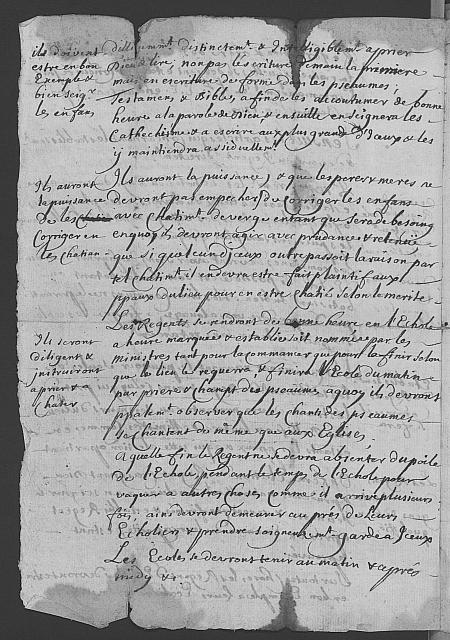 ils doivent
estre en bon
Exemple &
bien Seigr
les enfans
diligemmt distinctemt & Intelligiblemt a prier
Dieu & lire, non pas les criture de main la premiere
mais en escriture de forme dans les pseaumes;
Testamens & Bibles, a fin de les accoutumer de bonne
heure a la parole de Dieu & en suitte enseignera les
Cathechisme & a escrire aux plus grands d'Iceux & les
ÿ maintiendra assiduellemt
Ils auront
la puissance
De les
Corriger en
les Chatian-
Ils auront la puissance, & que les peres & meres ne
devront pas empecher, de Corriger les enfans
avec Chatimt de verge entant que sera de besoing
en quoy ils devront agir avec prudance & retenue
que si quelcun d'jceux outrepassoit la raison par
tel chatimt il en devra estre fait plaintif aux
ppaux du lieu pour en estre Chatiés selon le merite
Ils seront
diligent &
instruiront
a prier & a
Chater
Les Regents se rendront des bonne heure en l'Echole
a heure marquée & establie soit nommée par les
ministres tant pour la commancer que pour la finir selon
que le lieu le requerra & finira l'Ecole du matin
par priere & Chanpt des pseaume, a quoy ils devront
ppalemt observer que les Chants des pseaumes
se Chantent du même que aux Eglises,
A quelle fin le Regent ne se devra absenter du poile
de l'Echole pendant le temps de l'Echole pour
vaquer a autres choses comme il arrive plusieurs
fois, ains devront demeurer au prés de Leurs
Echoliers & prendre soigneusemt garde a Jceux
Les Ecoles se devront tenir au matin & aprés
midÿ &